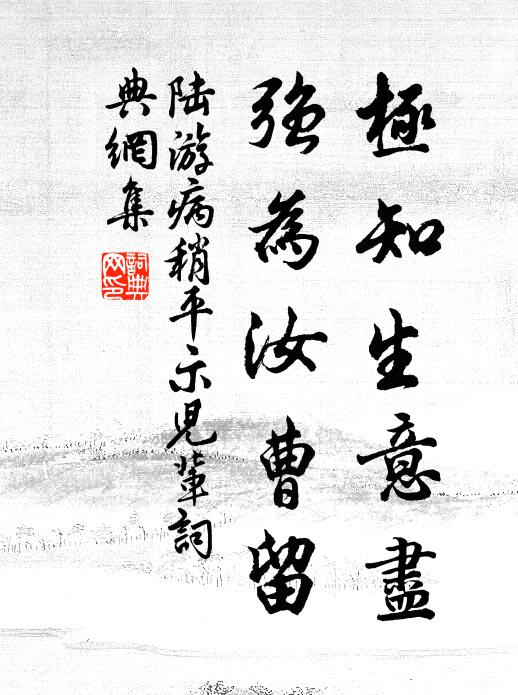 極知生意盡
強為汝曹留
陸游病稍平示兒輩詞
典網集
詞典网印